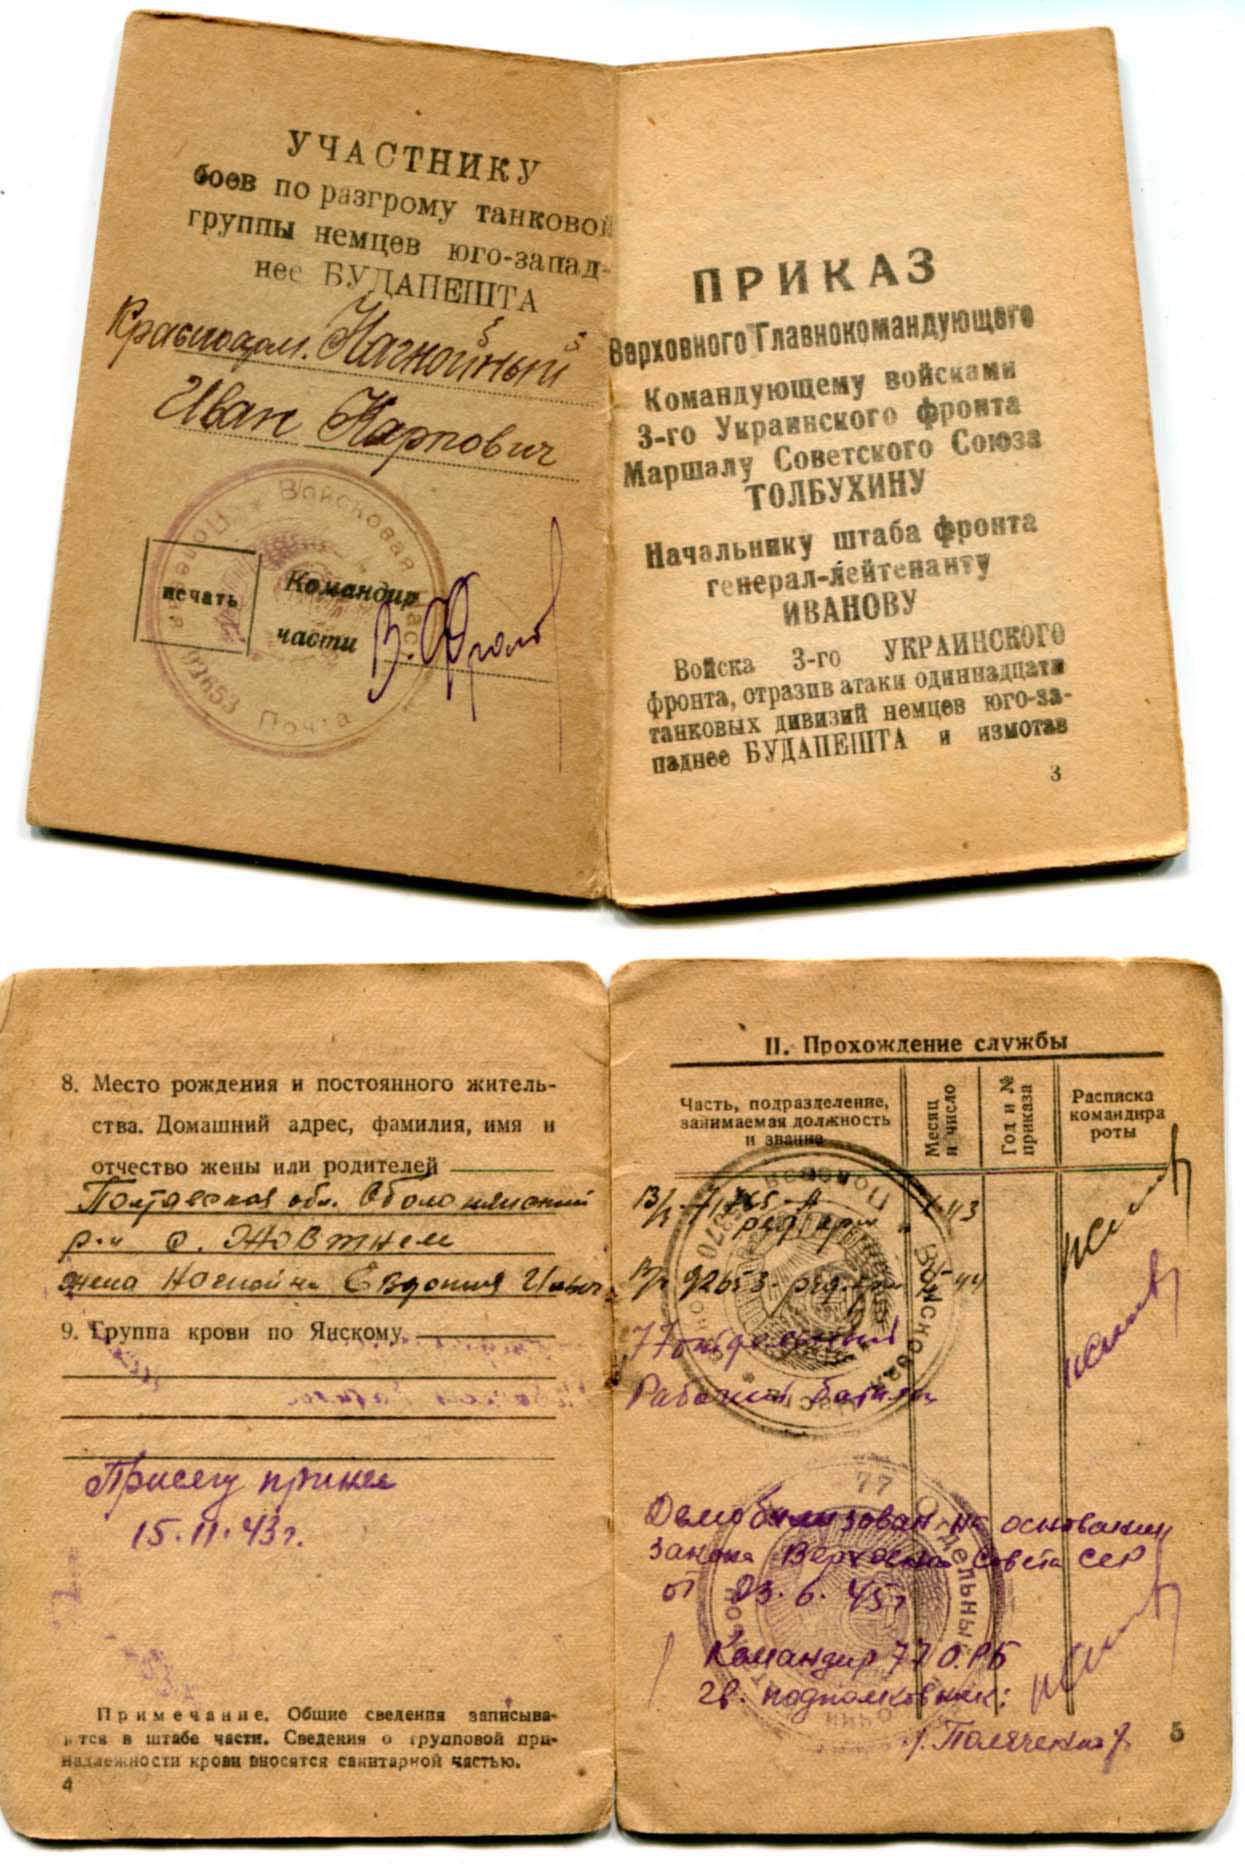 УЧАСТНИКУ
боев по разгрому танковой
группы немцев юго-запад-
нее БУДАПЕШТА
Иван Карпович
Войсковая часть
Полевая Почта
печать
Командир
части
ПРИКАЗ
Верховного Главнокомандующего
Командующему войсками
3-го Украинского фронта
Маршалу Советского Союза
ТОЛБУХИНУ
Начальнику штаба фронта
генерал-лейтенанту
ИВАНОВУ
Войска 3-го УКРАИНСКОГО
фронта, отразив атаки одиннадцати
танковых дивизий немцев юго-за-
паднее БУДАПЕШТА и измотав
3
8. Место рождения и постоянного житель-
ства. Домашний адрес, фамилия, имя и
отчество жены или родителей
Полтавская обл. Оболонянский
р-н с. Жовтнем
жена Евдокия
9. Группа крови по Янскому,
Присягу принял
15.11.43 г.
Примечание. Общие сведения записыва-
ются в штабе части. Сведения о групповой при-
надлежности крови вносятся санитарной частью.
4
II. Прохождение службы
Часть, подразделение,
занимаемая должность
и звание
Месяц
и число
Год и №
приказа
Расписка
командира
роты
Рабочий
Демобилизован на основании
закона Верховного Совета СССР
от 23.6.45 г
Командир 77 ОРБ
гв. подполковник:
5